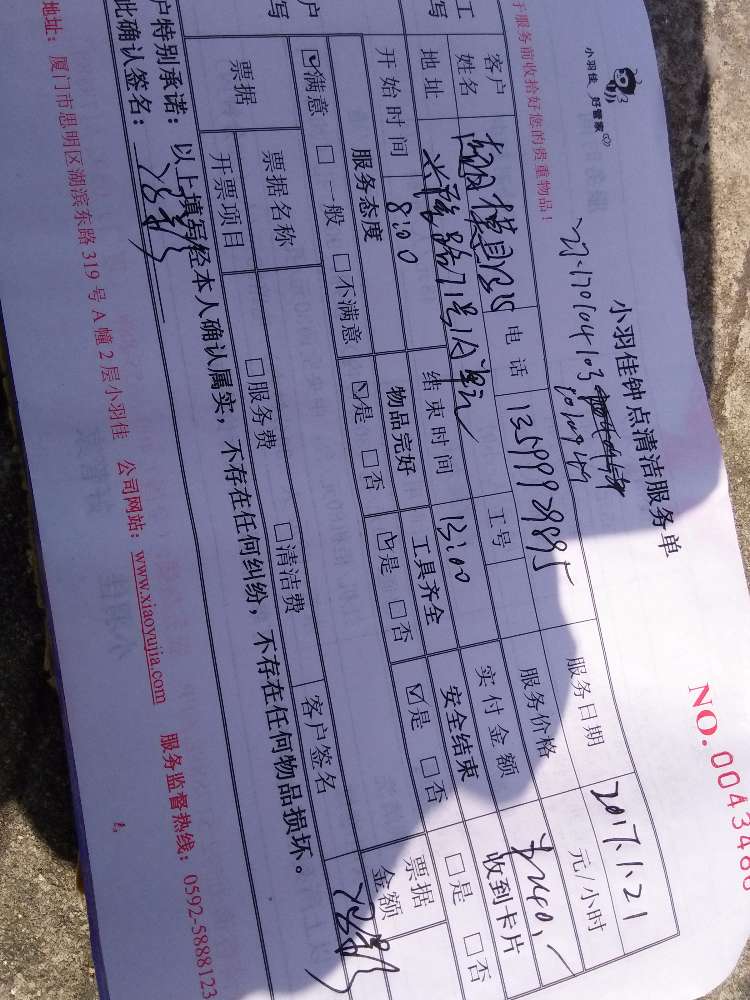 小羽佳 好管家
小羽佳钟点清洁服务单
NO. 0043486
于服务前收拾好您的贵重物品！
服务日期 2017.1.21
客户 姓名 电话 13599929895 服务价格 元/小时
地址 工号 实付金额 240,-
开始时间 8:00 结束时间 13:00
服务态度 物品完好 工具齐全 安全结束 收到卡片
☑满意 □一般 □不满意 ☑是 □否 ☑是 □否 ☑是 □否 □是 □否
票据 票据名称 客户签名 票据金额
开票项目 □服务费 □清洁费
户特别承诺：以上填写经本人确认属实，不存在任何纠纷，不存在任何物品损坏。
此确认签名：
地址：厦门市思明区湖滨东路 319 号 A 幢 2 层小羽佳 公司网站：www.xiaoyujia.com 服务监督热线：0592-5888123